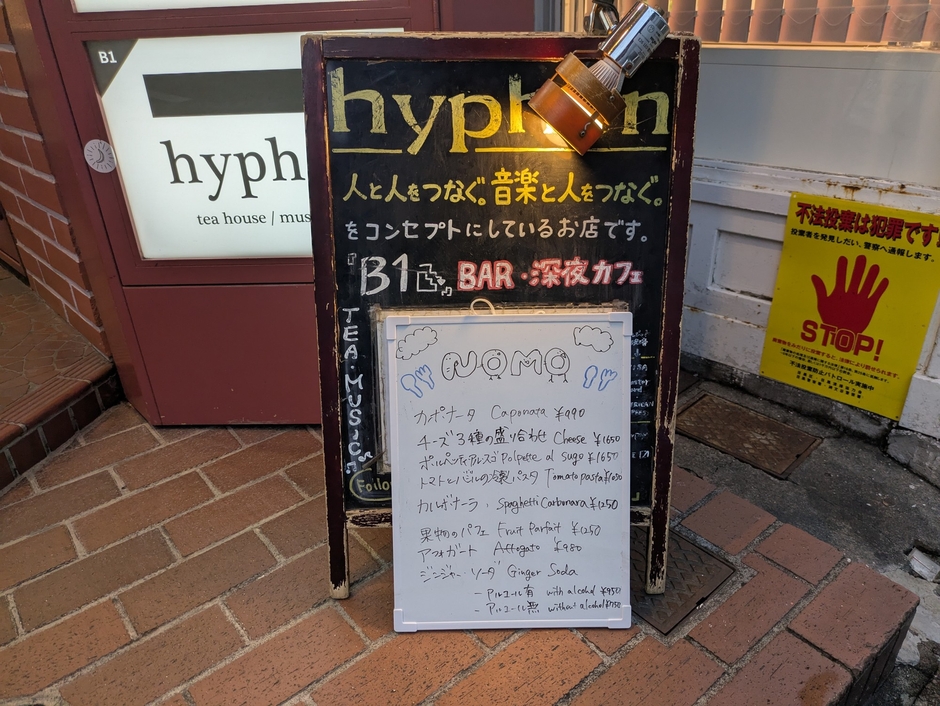 B1
hyph
tea house / mus
hyph n
人と人をつなぐ。音楽と人をつなぐ。
をコンセプトにしているお店です。
B1 BAR・深夜カフェ
TEA・MUSIC
Follo
NOMO
カポナータ Caponata ¥990
チーズ3種の盛り合わせ Cheese ¥1650
ポルペッティアルスゴ Polpette al sugo ¥1650
トマトとバジルの冷製パスタ Tomato pasta
カルボナーラ Spaghetti Carbonara ¥1250
果物のパフェ Fruit Parfait ¥1250
アフォガート Affogato ¥980
ジンジャーソーダ Ginger Soda
－アルコール有 with alcohol ¥950
－アルコール無 without alcohol
不法投棄は犯罪です
投棄者を発見しだい、警察へ通報します。
STOP!
廃棄物をみだりに投棄すると、法律により罰せられます。
不法投棄防止パトロール実施中